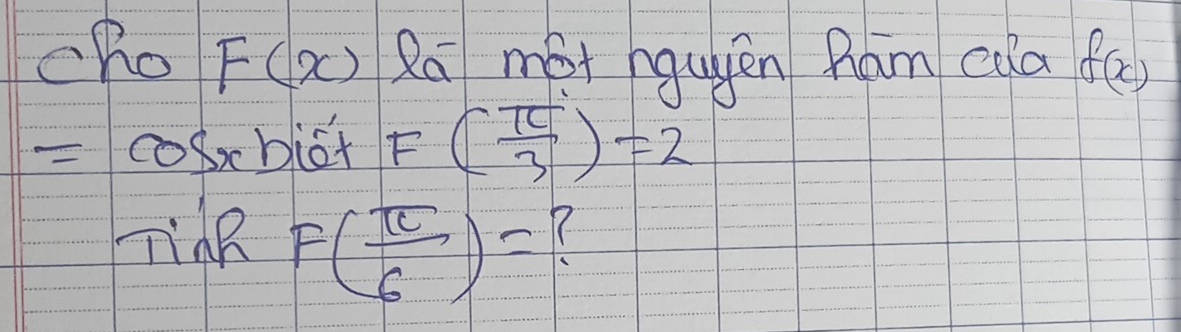 Cho F(x) là một nguyên hàm của f(x)
= cosx biết F(π/3)=2
Tính F(π/6)=?